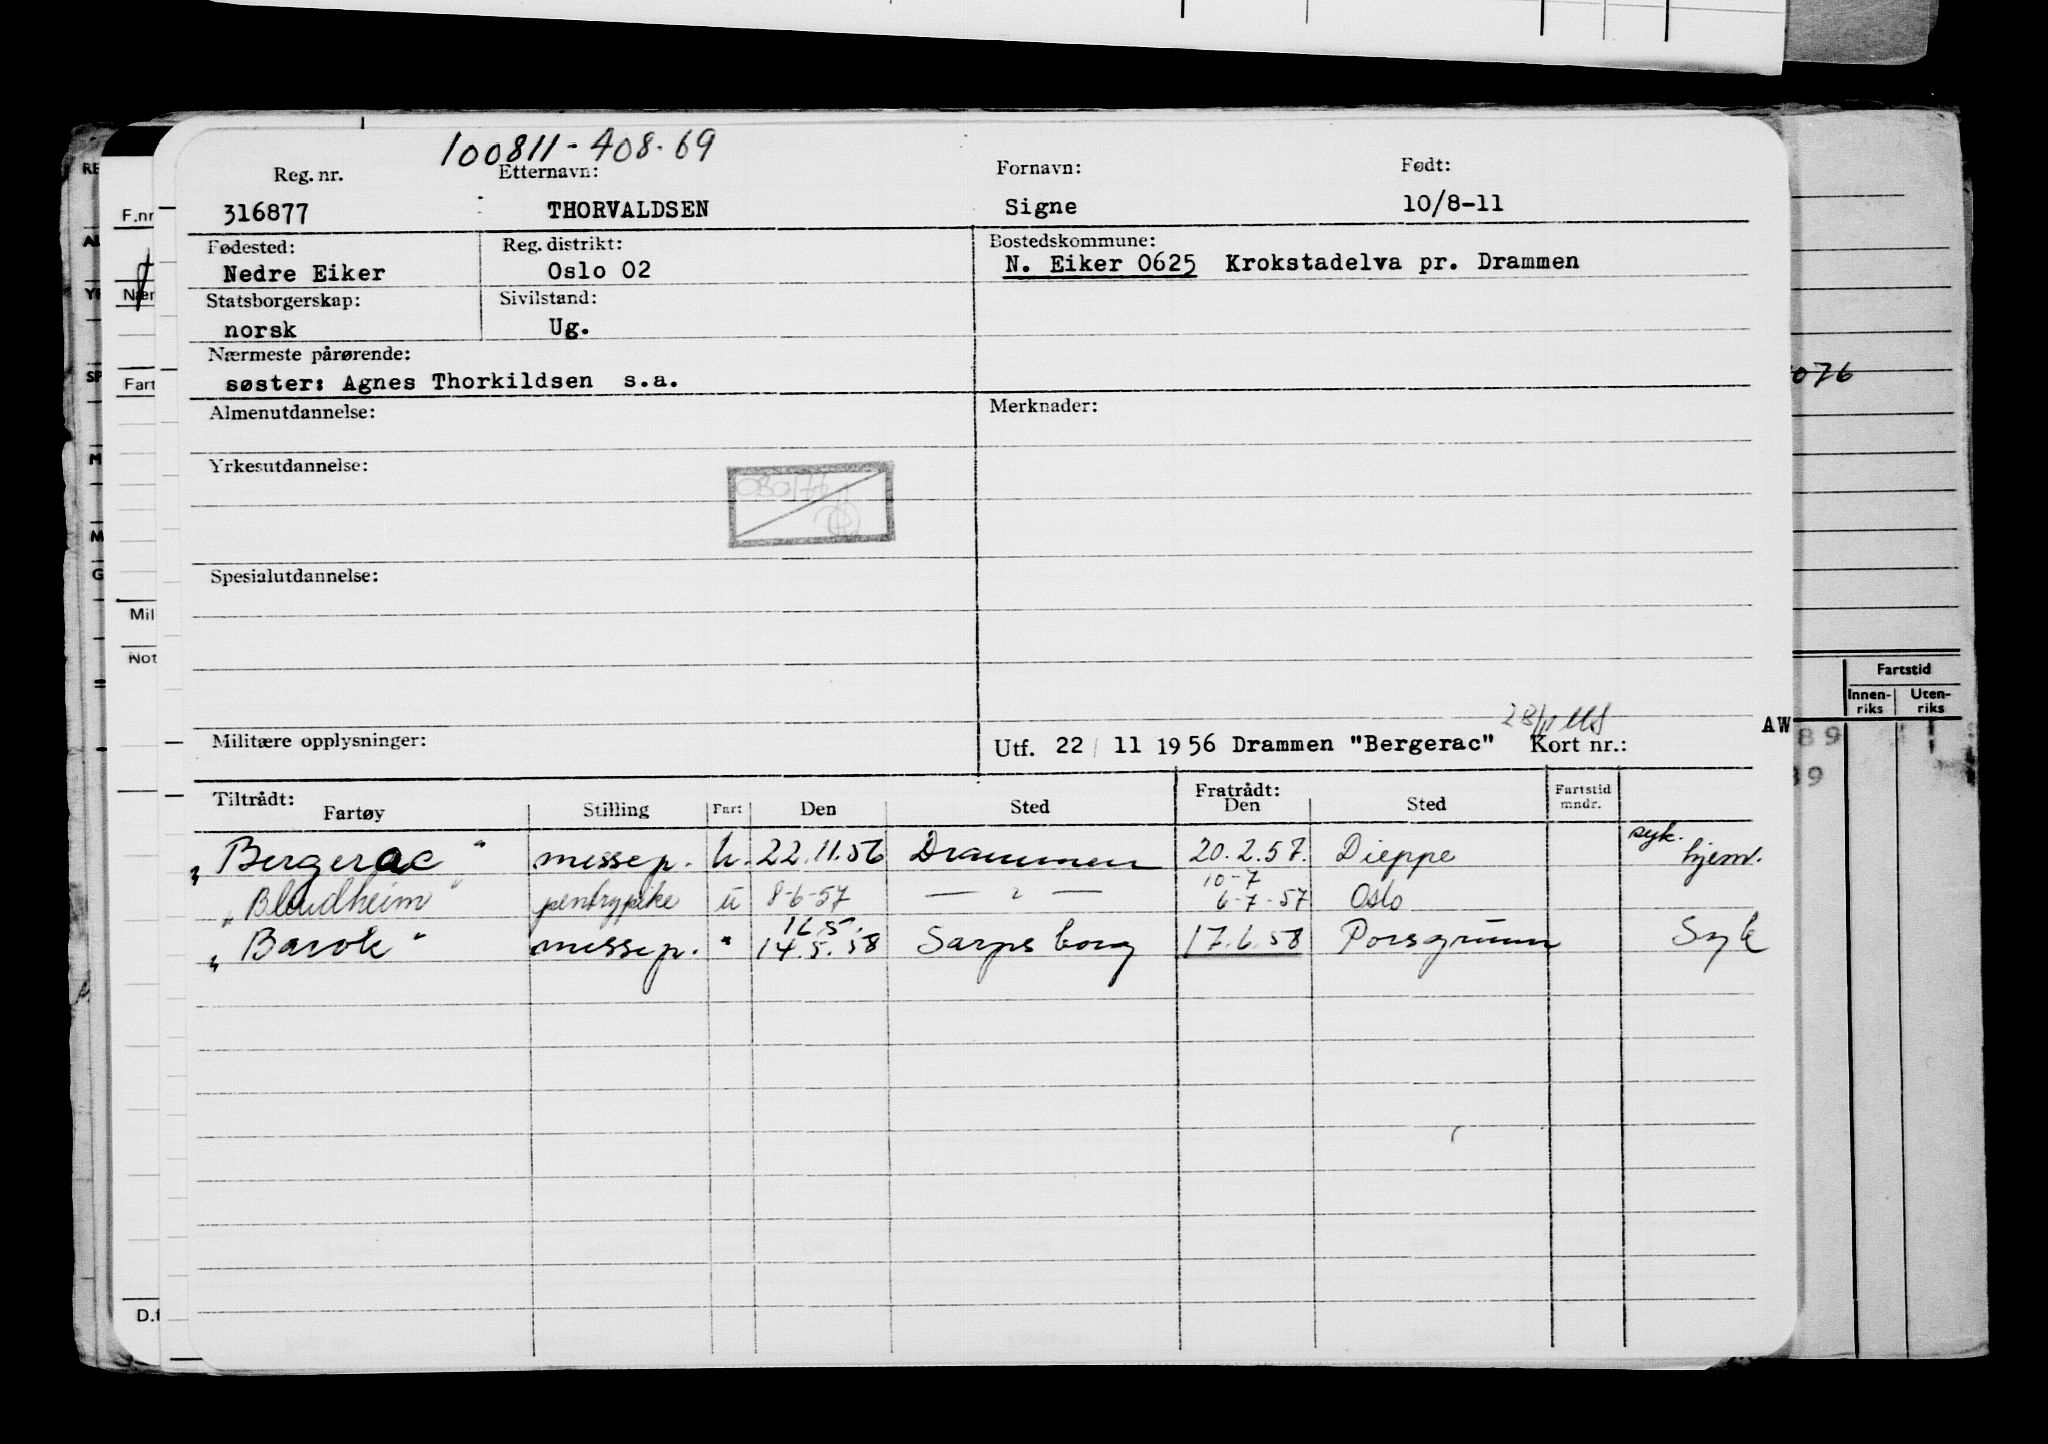 100811-408.69
Reg. nr. Etternavn: Fornavn: Født:
316877 THORVALDSEN Signe 10/8-11
Fødested: Reg. distrikt: Bostedskommune:
Nedre Eiker Oslo 02 N. Eiker 0625 Krokstadelva pr. Drammen
Statsborgerskap: Sivilstand:
norsk Ug.
Nærmeste pårørende:
søster: Agnes Thorkildsen s.a.
Almenutdannelse: Merknader:
Yrkesutdannelse:
Spesialutdannelse:
28/11
Militære opplysninger: Utf. 22 / 11 1956 Drammen "Bergerac" Kort nr.:
Tiltrådt: Fratrådt: Fartstid mndr.
Fartøy Stilling Fart Den Sted Den Sted
"Bergerac" messep. u. 22.11.56 Drammen 20.2.57. Dieppe syk. hjem.
10-7
"Blindheim" pentrypike u 8-6-57 — " — 6-7-57 Oslo
16.5.
"Barok" messep. " 14.5.58 Sarpsborg 17.6.58 Porsgrunn Syk
RE
F.nr
Nær
SP
Fart
M
M
G
Mil
Not
D.f
076
Fartstid
Innen-riks Uten-riks
AW
89
39